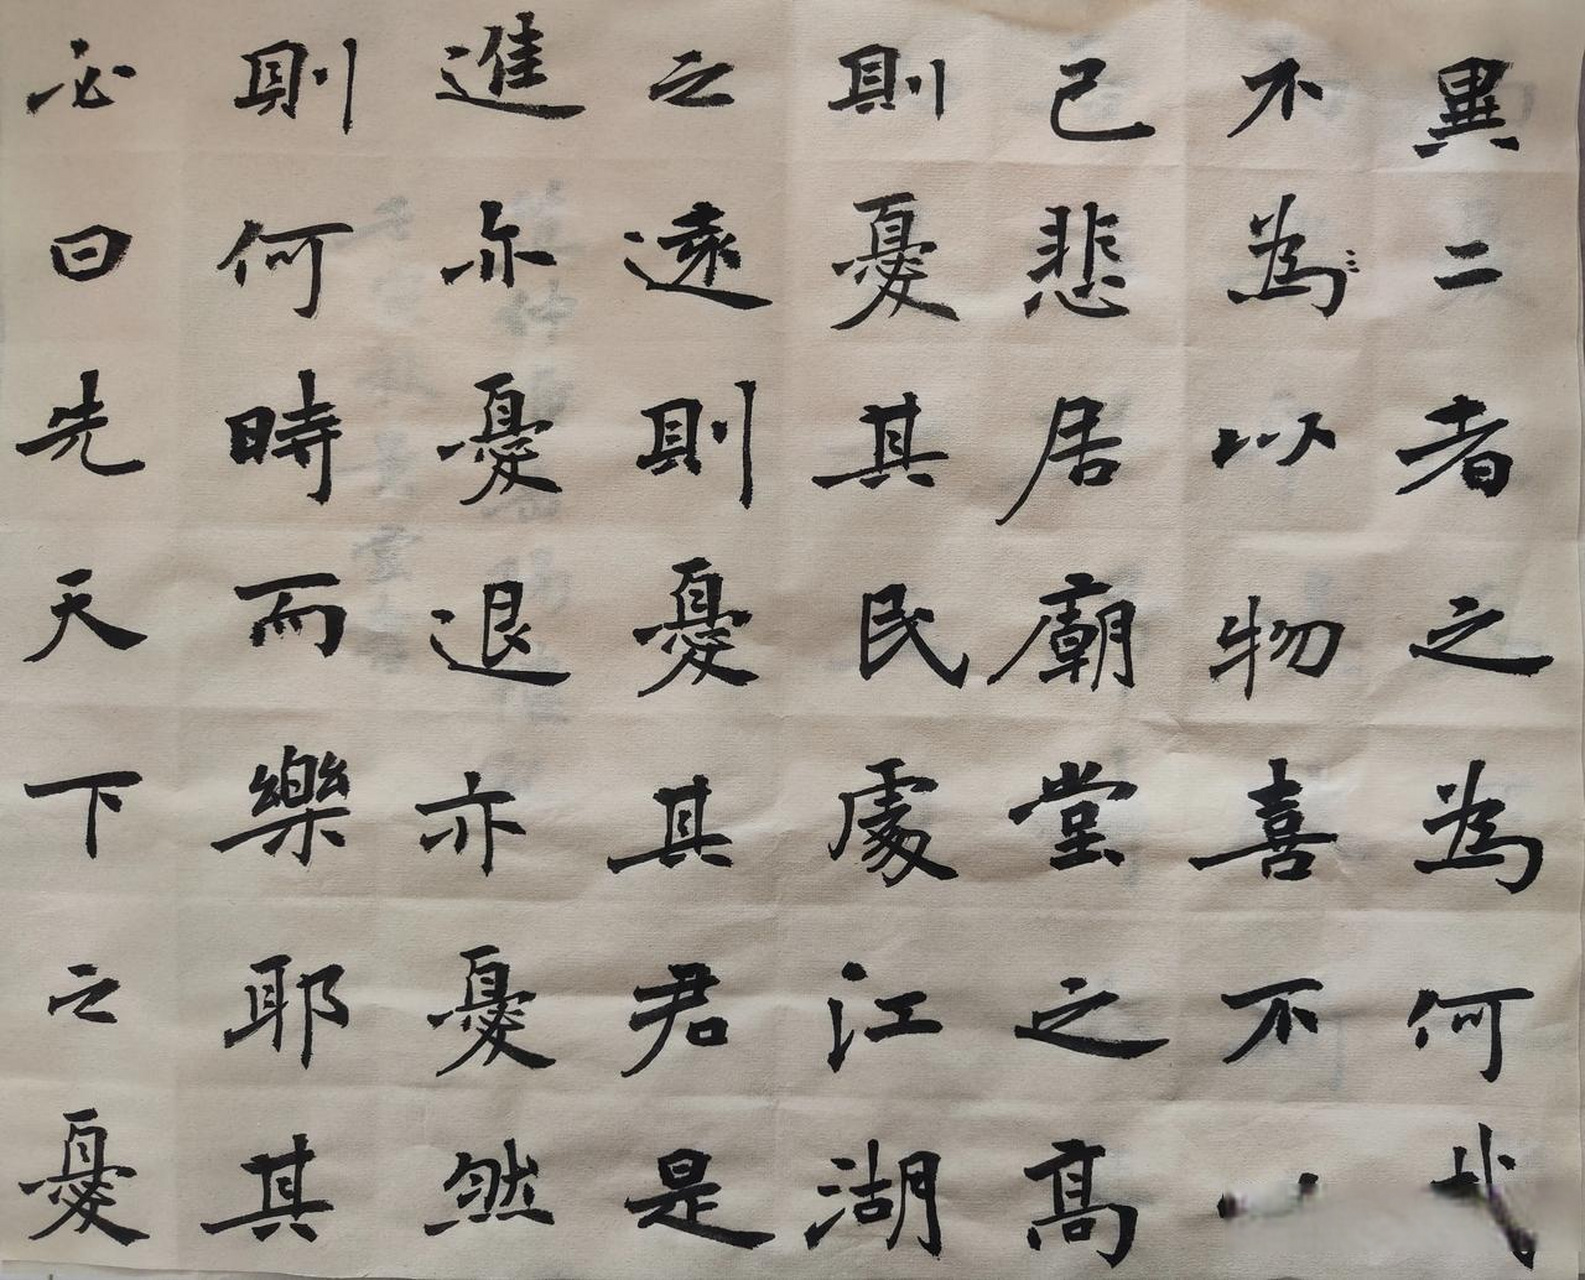 異二者之為何哉
不為以物喜不
己悲居廟堂之高
則憂其民處江湖
之遠則憂其君是
進亦憂退亦憂然
則何時而樂耶其
必曰先天下之憂